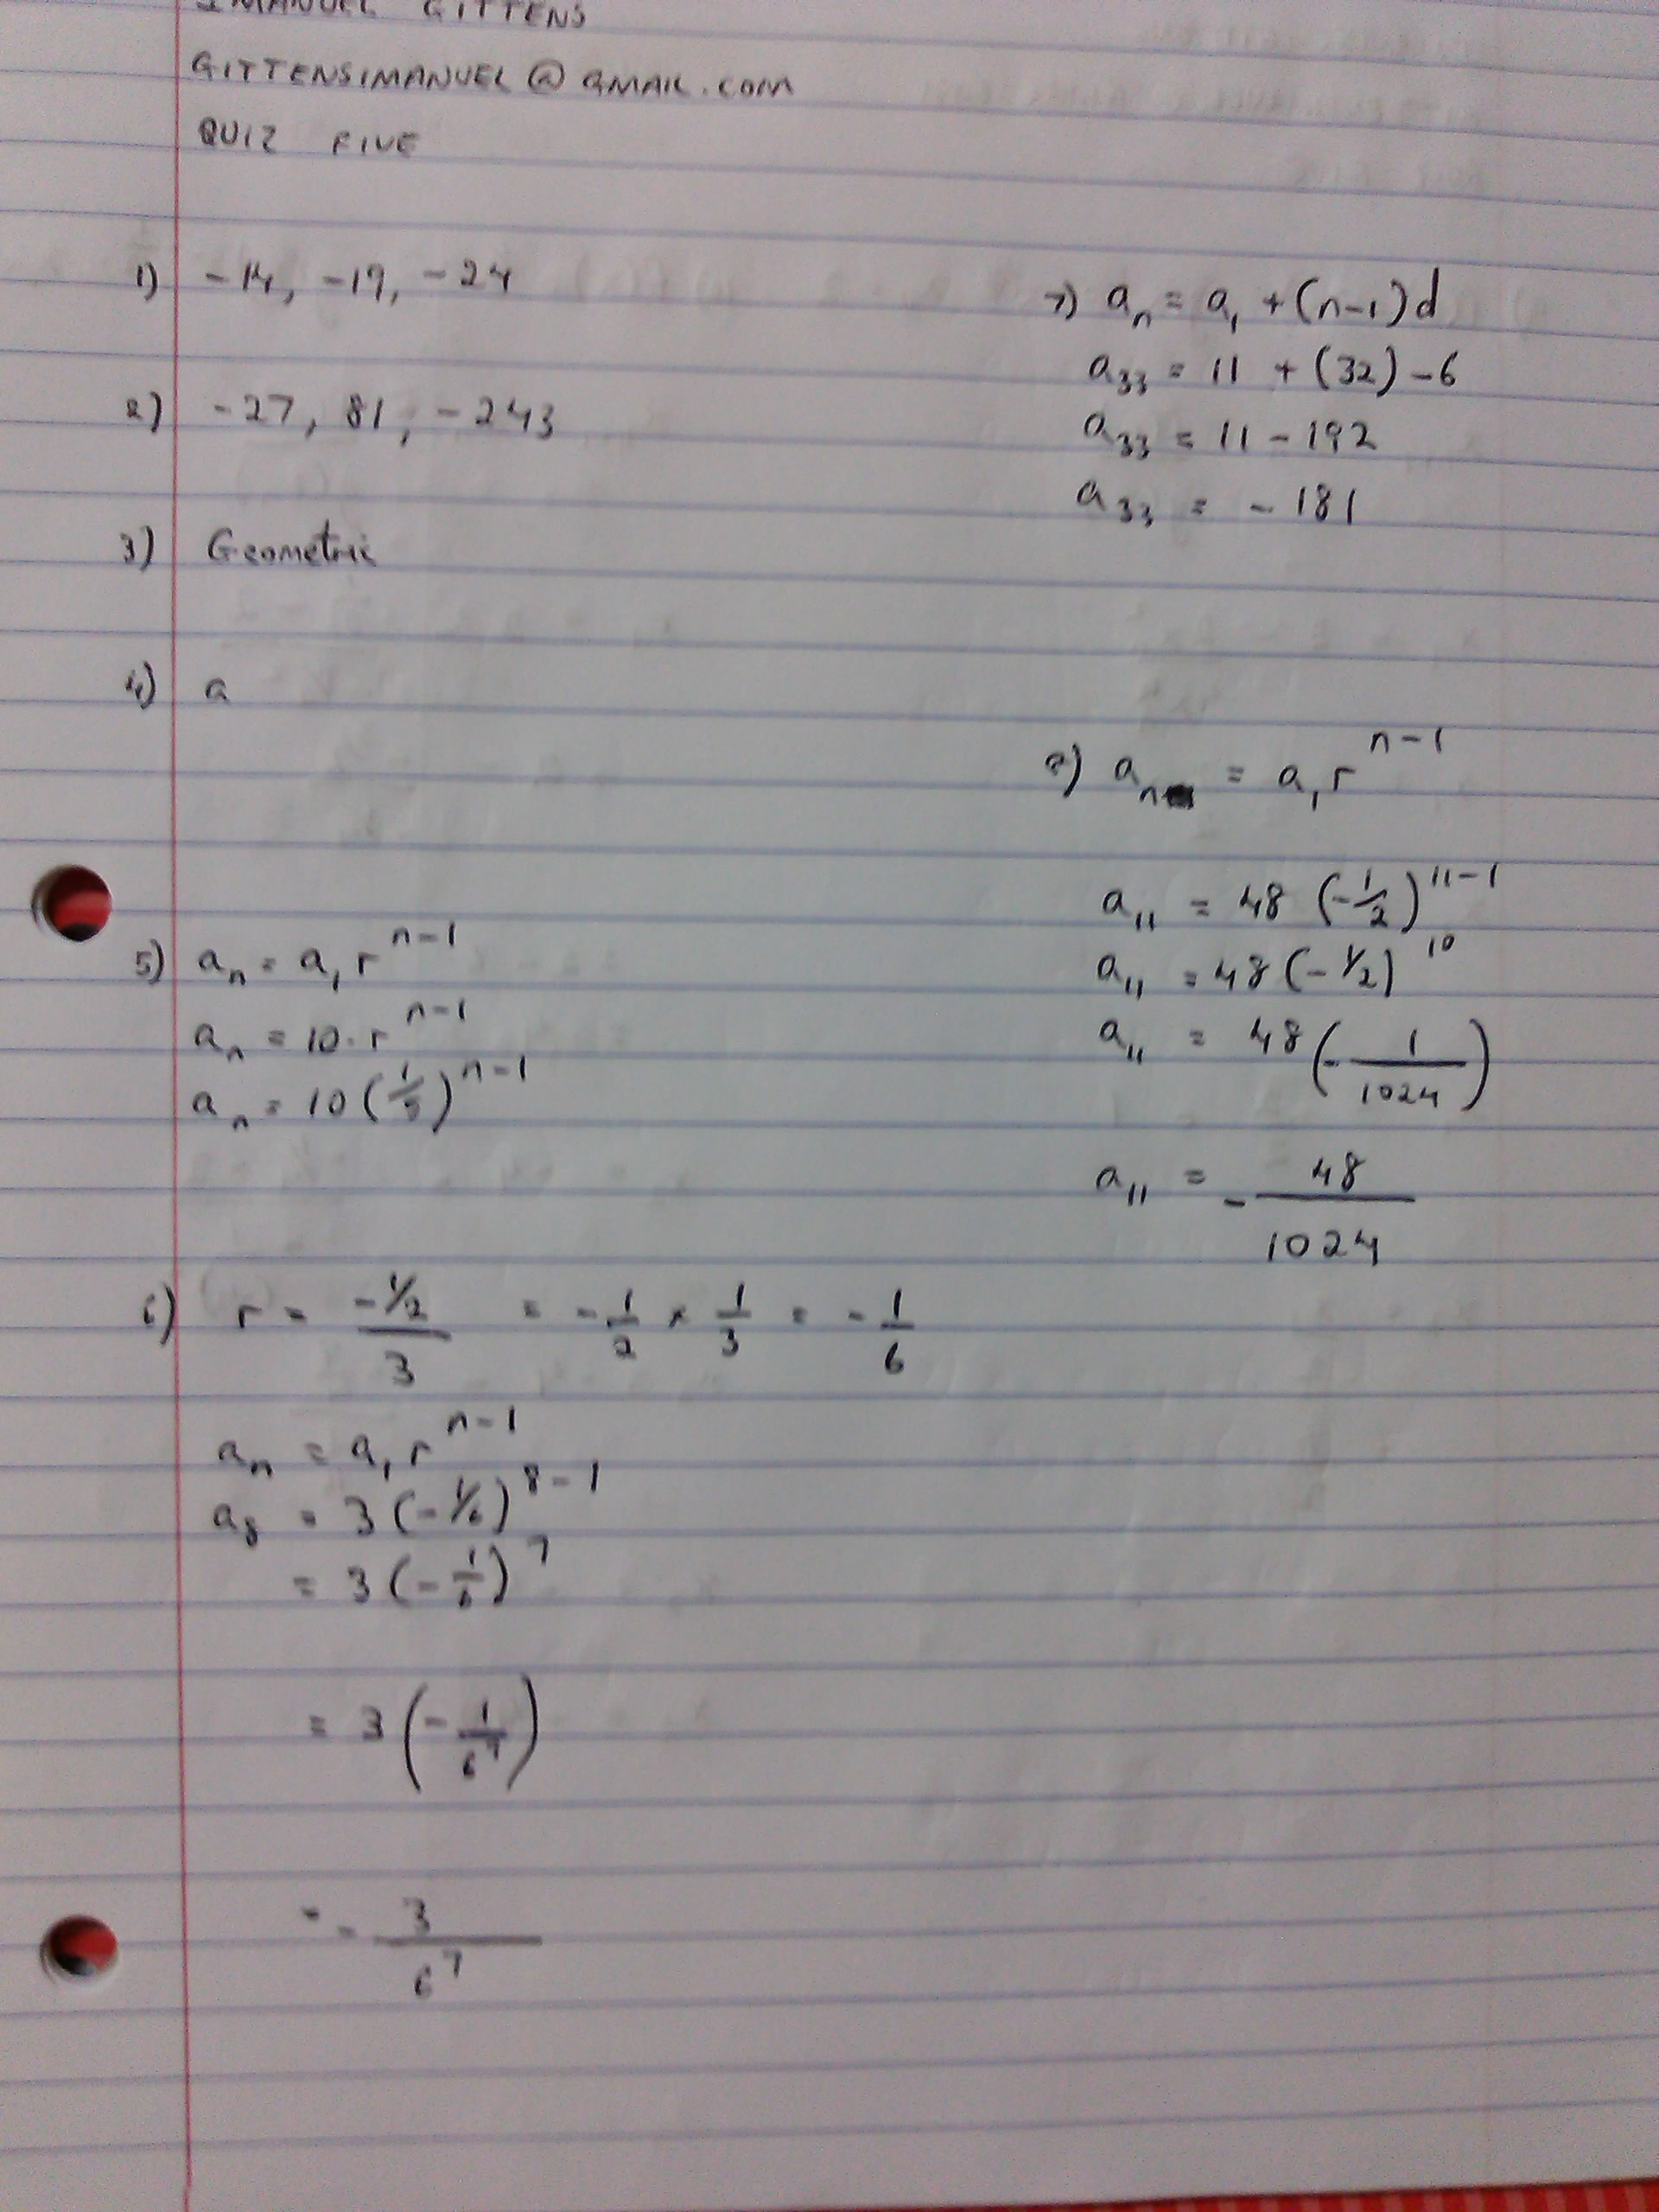 IMANUEL GITTENS
GITTENSIMANUEL@GMAIL.COM
QUIZ FIVE
1) -14, -19, -24
2) -27, 81, -243
3) Geometric
4) a
5) aₙ = a₁ rⁿ⁻¹
aₙ = 10 · rⁿ⁻¹
aₙ = 10 (1/5)ⁿ⁻¹
6) r = (-1/2)/3 = -1/2 × 1/3 = -1/6
aₙ = a₁ rⁿ⁻¹
a₈ = 3 (-1/6)⁸⁻¹
= 3 (-1/6)⁷
= 3 (-1/6⁷)
= -3/6⁷
7) aₙ = a₁ + (n-1)d
a₃₃ = 11 + (32) -6
a₃₃ = 11 - 192
a₃₃ = -181
aₙ = a₁ rⁿ⁻¹
a₁₁ = 48 (-1/2)¹¹⁻¹
a₁₁ = 48 (-1/2)¹⁰
a₁₁ = 48 (-1/1024)
a₁₁ = -48/1024